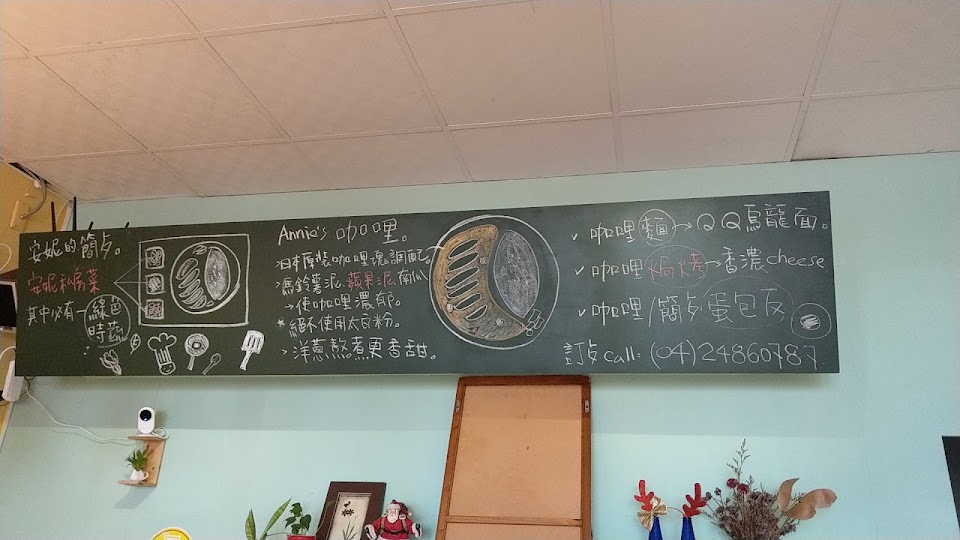 安妮的簡歺。
安妮私房菜
其中必有一綠色
時蔬
Annie's 咖哩。
日本原裝咖哩塊調配。
馬鈴薯泥、蘋果泥、南瓜
→使咖哩濃郁。
* 絕不使用太白粉。
洋蔥熬煮更香甜。
✓ 咖哩麵→QQ烏龍面。
✓ 咖哩焗烤→香濃cheese
✓ 咖哩/簡歺蛋包反
訂歺call: (04)24860787